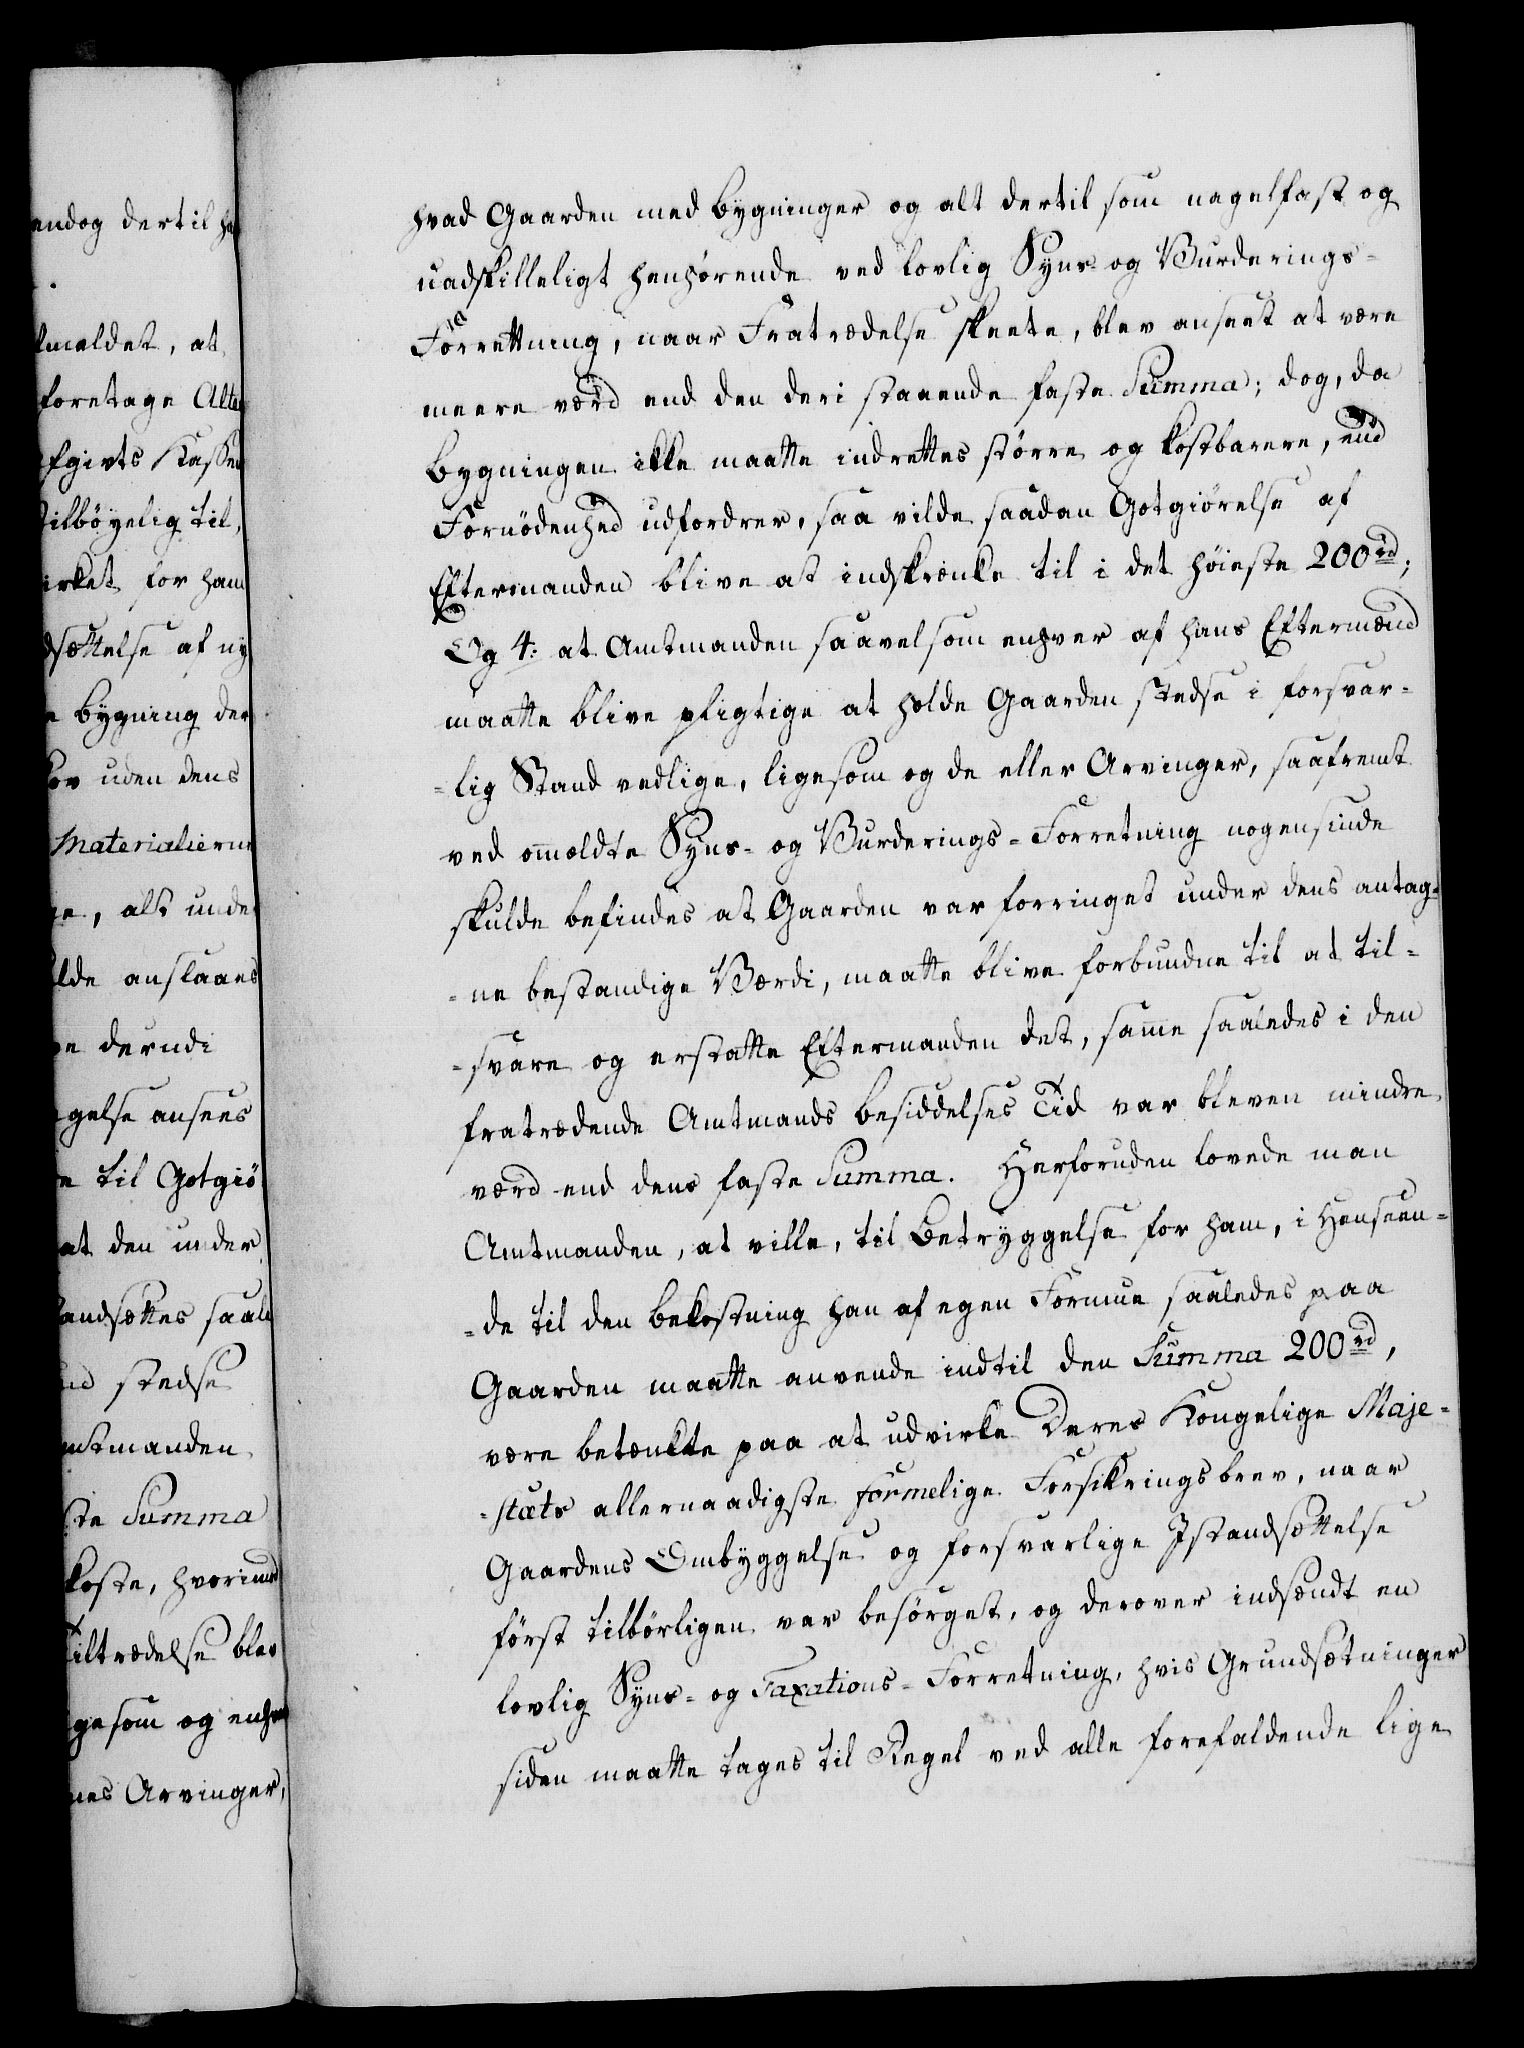 endog dertil ha
lmeldet, at
foretage Alte
fgivts Kassen
tilböyelig til,
irket for ham
dsættelse af ny
e bygning der
ov uden dens
Materialierne
e, alt under
lde anslaaes
e derudi
gelse ansees
e til Godtgiö
at den under
andsættes saale
d stedse
mtmanden
ste Summa
koste, hvorimod
iltrædelse blev
gesom og enhver
nes Arvinger,
hvad Gaarden med bygninger og alt dertil som nagelfast og
uadskilleligt henhörende ved lovlig Syns- og Vurderings-
Forrettning, naar Fratrædelse skeete, blev anseet at være
meere værd end den deri staaende faste Summa; dog, da
bygningen ikke maatte indrettes större og kostbarere, end
Fornödenhed udfordrer, saa vilde saadan Gotgiörelse af
Eftermanden blive at indskrænke til i det höieste 200 rd;
Og 4: at Amtmanden saavelsom enhver af hans Eftermænd
maatte blive pligtige at holde Gaarden stedse i forsvar-
-lig Stand vedlige, ligesom og de eller Arvinger, saafremt
ved ommeldte Syns- og Vurderings-Forretning nogensinde
skulde befindes at Gaarden var forringet under dens antag-
-ne bestandige Værdi, maatte blive forbundne til at til-
-svare og erstatte Eftermanden det, samme saaledes i den
fratrædende Amtmands besiddelses Tid var bleven mindre
værd end dens faste Summa. Herforuden lovede man
Amtmanden, at ville, til Betryggelse for ham, i Henseen-
-de til den bekostning han af egen Formue saaledes paa
Gaarden maatte anvende indtil den Summa 200 rd,
være betænkte paa at udvirke Deres Kongelige Maje-
-stæts allernaadigste formelige Forsikringsbrev, naar
Gaardens Ombyggelse og forsvarlige Istandsættelse
först tilbörligen var besörget, og derover indsendt en
lovlig Syns- og Taxations-Forretning, hvis Grundsætninger
siden maatte tages til Regel ved alle forefaldende lige